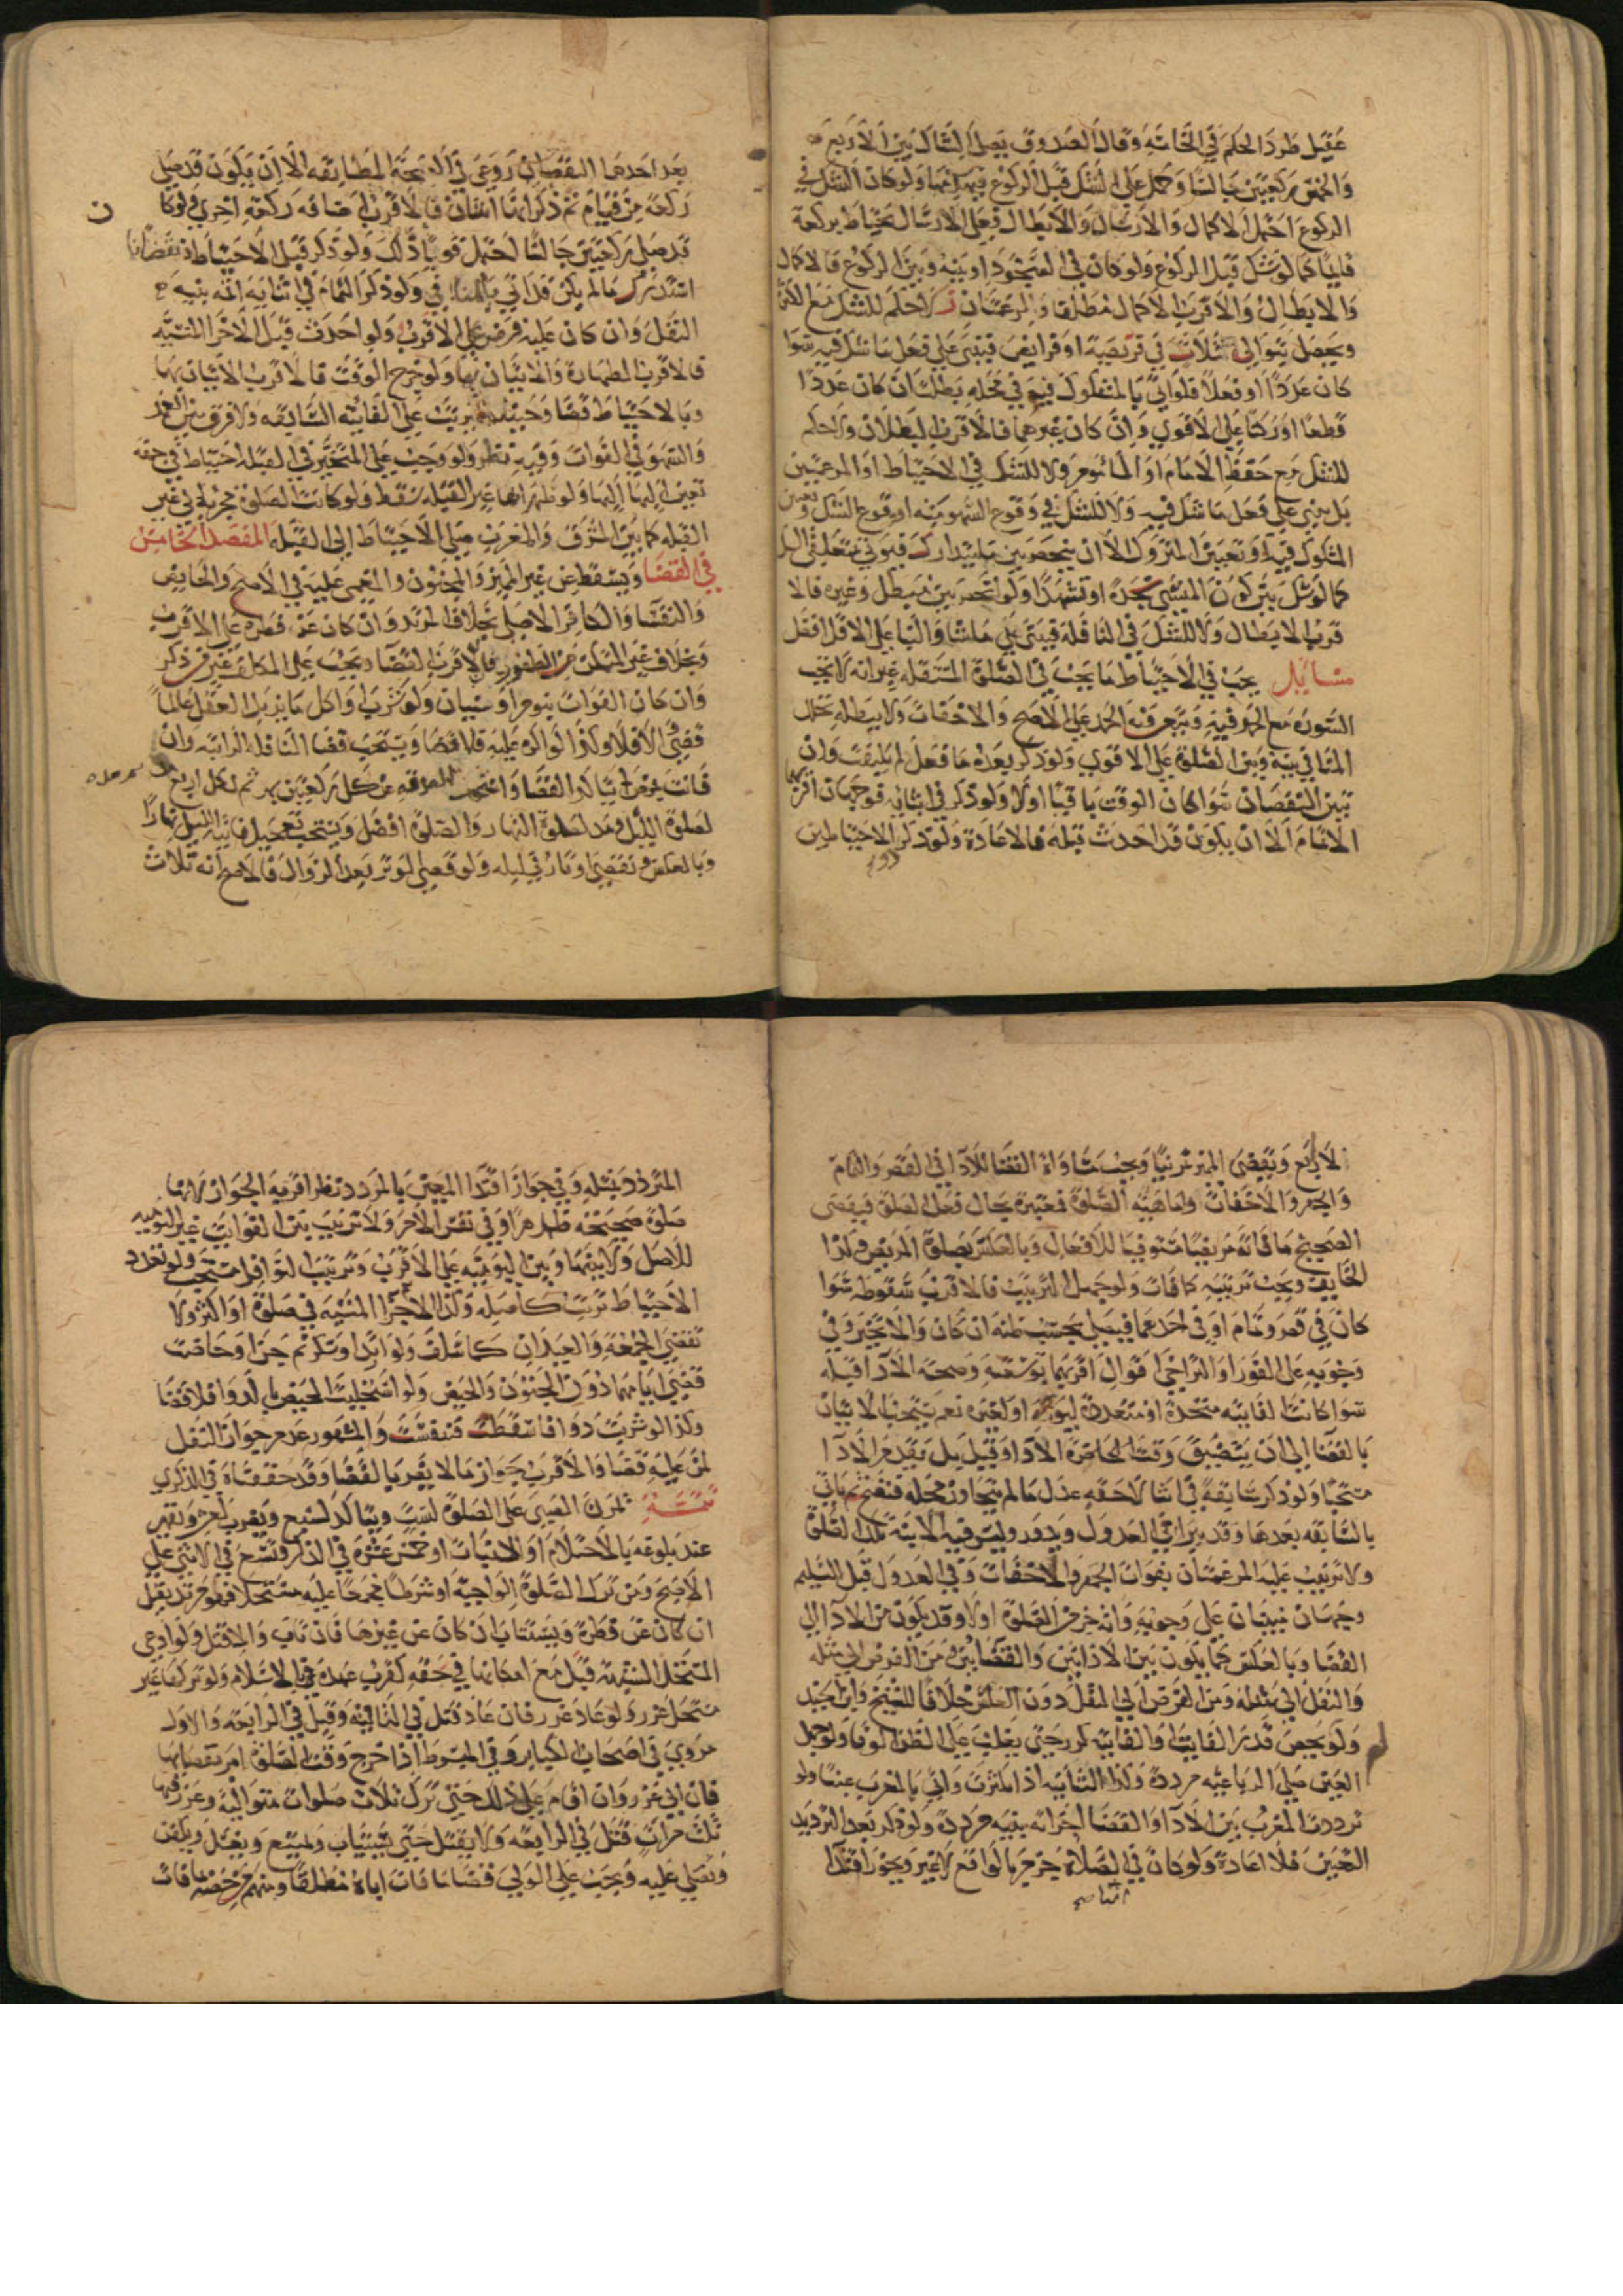 عقيل طردا لحكم في الخامسة وقال الصدوق يصلي الشاك بين الاربع
والخمس ركعتين جالسا وحمل على الشك قبل الركوع فيهدمها ولو كان الشك في
الركوع احتمل الاكمال والارسال والابطال فعلى الارسال يحتاط بركعة
قايما كما لو شك قبل الركوع ولو كان في السجود او بينه وبين الركوع فالاكمال
والابطال والاقرب الاكمال مطلقا والمرغمتان لا حكم للشك مع الكثرة
ويحصل بتوالي ثلاث في فريضة او فرايض فيبني على فعل ما شك فيه سوا
كان عددا او فعلا فلو اتى بالمشكوك فيه في محله بطلت ان كان عددا
قطعا او ركنا على الاقوى وان كان غيرهما فالاقرب البطلان ولا حكم
للشك مع حفظ الامام او الماموم ولا للشك في الاحتياط او المرغمتين
بل يبني على فعل ما شك فيه ولا للشك في وقوع السهو منه او وقوع الشك وتعين
المشكوك فيه او تعيين المتروك الا ان ينحصر بين ما يتدارك فيوتى بمتعلق الشك
كما لو شك بين كون المنسي سجدة او تشهدا ولو انحصر بين مبطل وغيره فالا
قرب الابطال ولا للشك في النافلة فيبني على ما شا والبنا على الاقل افضل
مسائل يجب في الاحتياط ما يجب في الصلوة المستقلة غير انه لا تجب
السورة مع الحمد فيه ويتعين فيه الحمد على الاصح والاخفات ولا يبطله تخلل
المنافي بينه وبين الصلوة على الاقوى ولو ذكر بعده ما فعل لم يلتفت وان
تبين النقصان سوا كان الوقت باقيا اولا ولو ذكر في اثنايه فوجهان اقربهما
الاتمام الا ان يكون قد احدث قبله فالاعادة ولو ذكر الاحتياطين
بعد احدهما النقصان روعي في الصحة المطابقة الا ان يكون قد صلى
ركعة من قيام ثم ذكر انها اثنتان فالاقرب اضافة ركعة اخرى ولو كا
قد صلى ركعتين جالسا احتمل قويا ذلك ولو ذكر قبل الاحتياط نقصانا
استدرك ما لم يكن قد اتى بالمنافي ولو ذكر التمام في اثنايه اتمه بنية
النفل وان كان عليه فرض على الاقرب ولو احدث قبل الاجزا المنسية
فالاقرب الطهارة والاتيان بها ولو خرج الوقت فالاقرب الاتيان بها
وبالاحتياط قضا وحينئذ يترتب على الفايتة السابقة ولا فرق بين العمد
والسهو في الفوات وفيه نظر ولو وجب على المتحير في القبلة احتياط في جهة
تعين اليها ولو ظهر انها غير القبلة سقط ولو كانت الصلوة مجزية الى غير
القبلة كما بين المشرق والمغرب صلى الاحتياط الى القبلة المقصد الخامس
في القضا ويسقط عن غير المميز والمجنون والمغمى عليه في الاصح والحايض
والنفسا والكافر الاصلي بخلاف المرتد وان كان عن فطرة على الاقرب
وبخلاف غير المتمكن من الطهور فالاقرب القضا ويجب على المكلف غير من ذكر
وان كان الفوات بنوم او نسيان ولو شرب او اكل ما يزيل العقل عالما
قضى والا فلا وكذا لو اكره عليه فلا قضا ويستحب قضا النافلة الراتبة وان
فاتت بمرض لم يتاكد القضا واستحب الصدقة عن كل ركعتين بمد ثم لكل اربع
لصلوة الليل ومد لصلوة النهار والصلوة افضل ويستحب تعجيل فايتة الليل نهارا
وبالعكس وتقضى اوتار في ليلة ولو قضى الوتر بعد الزوال فالاصح انه ثلاث
الاربع وتقضى المرتبة ترتيبا ويجب مساواة القضا للادا في القصر والتمام
والجهر والاخفات واما هيئة الصلوة فمعتبرة بحال فعل الصلوة فيقضي
الصحيح ما فاته مريضا مستوفيا للافعال وبالعكس بصلوة المريض وكذا
الخايف ويجب ترتيبه كما فات ولو جهل الترتيب فالاقرب سقوطه سوا
كان في قصر وتمام او في احدهما فيصلي بحسب ظنه ان كان والا تخير وفي
وجوبه على الفور او التراخي اقوال اقربها توسعته وصحة الادا قبله
سوا كانت الفايتة متحدة او متعددة ليومه او لغيره نعم يستحب الاتيان
بالقضا الى ان يتضيق وقت الحاضرة الادا وقيل بل يتقدم الادا
مستحبا ولو ذكر سابقة في اثنا لاحقة عدل ما لم يتجاوز محله فتصح ثم ياتي
بالسابقة بعدها وقد يترامى العدول ويدور وليس فيه الا نية تلك الصلوة
ولا ترتيب عليه المرغمتان بفوات الجهر والاخفات وفي العدول قبل التسليم
وجهان يبنيان على وجوبه وانه جزء من الصلوة اولا وقد يكون من الادا الى
القضا وبالعكس كما يكون بين الادائين والقضائين ومن الفرض الى مثله
والنفل الى مثله ومن الفرض الى النفل دون العكس خلافا للشيخ وابن الجنيد
ولو لم يحص قدر الفايت او الفايتة كرر حتى يغلب على الظن الوفا ولو جهل
العين صلى الرباعية مرددة وكذا الثنائية اذا كثرت واتى بالمغرب عينا ولو
ترددت المغرب بين الادا والقضا اجزاته بنية مرددة ولو ذكر بعد الترديد
التعيين فلا اعادة ولو كان في الصلاة جزم بالواقع لا غير ويجوز اقتدا
المتردد بمثله وفي جواز اقتدا المعين بالمردد نظر اقربه الجواز لانها
صلوة صحيحة ظاهرا وفي نفس الامر ولا ترتيب بين الفوايت غير اليومية
للاصل ولا بينها وبين اليومية على الاقرب وترتيب النوافل مستحب ولو تعدد
الاحتياط ترتب كاصله وكذا الاجزا المنسية في صلوة او اكثر ولا
تقضى الجمعة والعيدان كما سلف ولو ارتد او سكر ثم جن او حاضت
قضى ايامهما دون الجنون والحيض ولو استجلبت الحيض بالدوا فلا قضا
وكذا لو شربت دوا فاسقطت فنفست والمشهور عدم جواز النفل
لمن عليه قضا والاقرب جواز ما لا يضر بالقضا وقد حققناه في الذكرى
تتمة يمرن الصبي على الصلوة لست ويتاكد لسبع ويضرب لعشر ويقهر
عند بلوغه بالاحتلام او الانبات او خمس عشرة في الذكر وتسع في الانثى على
الاصح ومن ترك الصلوة الواجبة او شرطا مجمعا عليه مستحلا فهو مرتد يقتل
ان كان عن فطرة ويستتاب ان كان عن غيرها فان تاب والا قتل ولو ادعى
المستحل الشبهة قبل مع امكانها في حقه كقرب عهده بالاسلام ولو تركها غير
مستحل عزر ولو عاد عزر فان عاد قتل في الثالثة وقيل في الرابعة والاول
مروي في اصحاب الكباير وفي المبسوط اذا خرج وقت الصلوة امر بقضايها
فان ابى عزر وان اقام على ذلك حتى ترك ثلاث صلوات متوالية وعزر فيها
ثلث مرات قتل في الرابعة ولا يقتل حتى يستتاب ويمتنع ويغسل ويكفن
ويصلى عليه ويجب على الولي قضا ما فات اباه مطلقا ومنهم من خصه بما فات